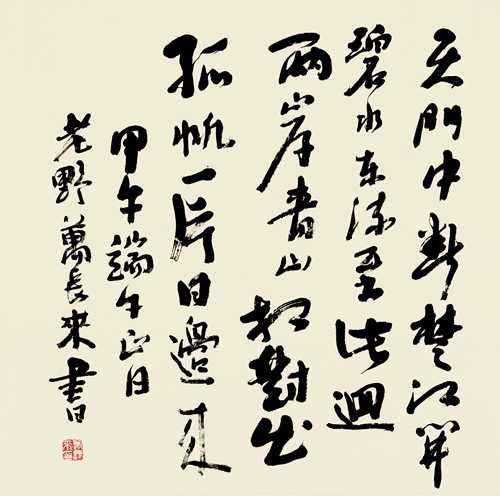 天門中斷楚江開
碧水東流至此迴
兩岸青山相對出
孤帆一片日邊來
甲午端午正日
老野萬長來書